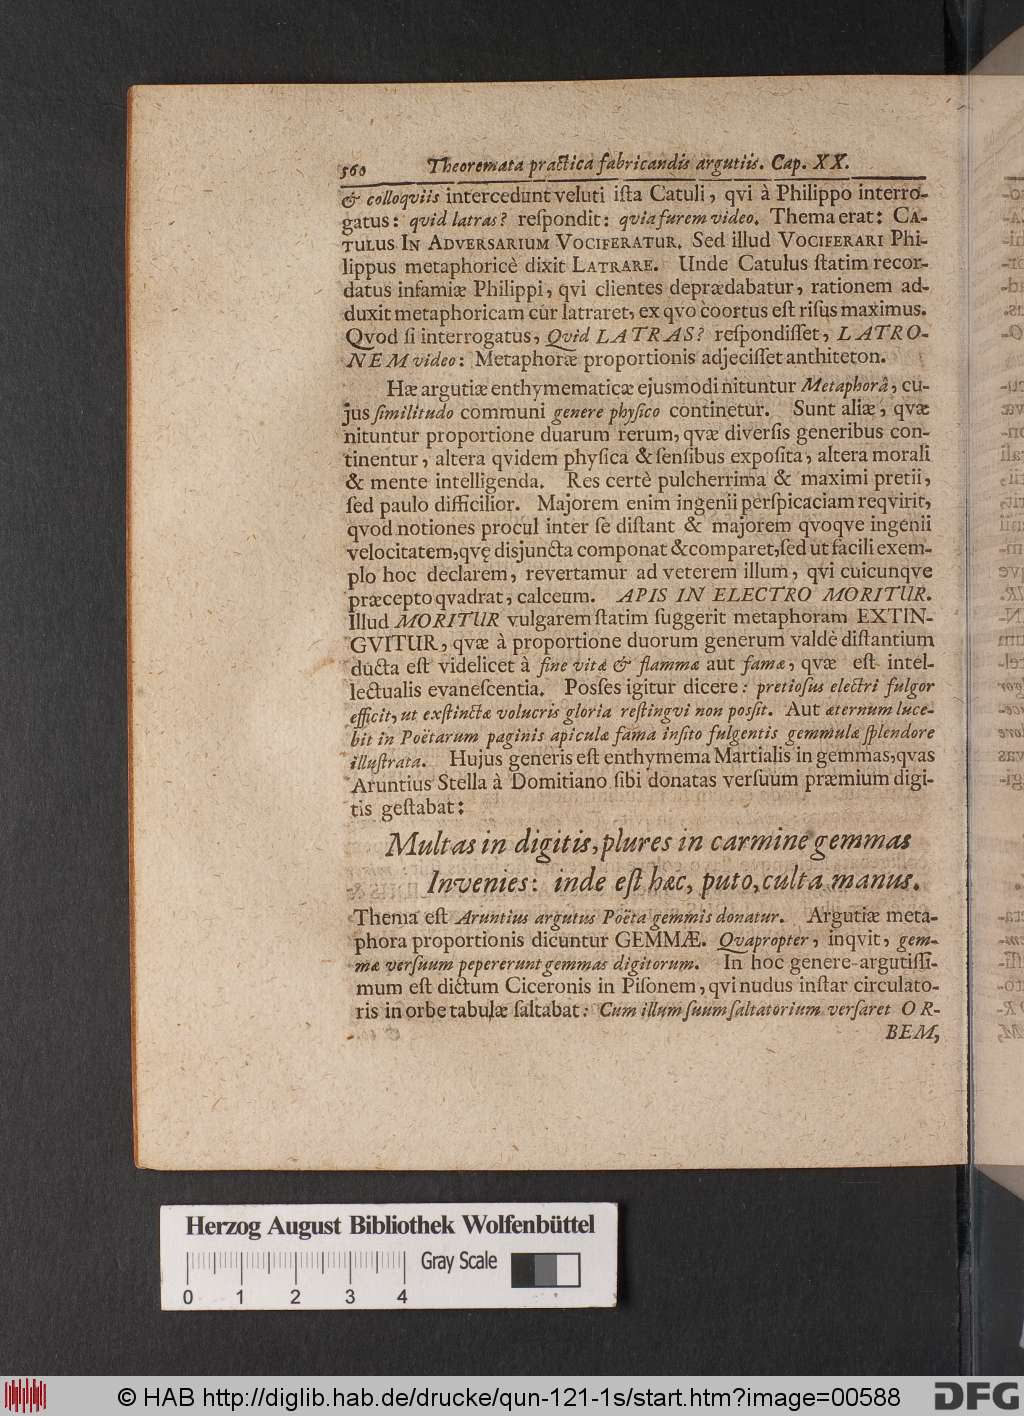 560 Theoremata practica fabricandis argutiis. Cap. XX.
& colloqviis intercedunt veluti iſta Catuli, qvi à Philippo interro-
gatus: qvid latras? reſpondit: qvia furem video. Thema erat: CA-
TULUS IN ADVERSARIUM VOCIFERATUR. Sed illud VOCIFERARI Phi-
lippus metaphoricè dixit LATRARE. Unde Catulus ſtatim recor-
datus infamiæ Philippi, qvi clientes deprædabatur, rationem ad-
duxit metaphoricam cur latraret, ex qvo coortus eſt riſus maximus.
Qvod ſi interrogatus, Qvid LATRAS? reſpondiſſet, LATRO-
NEM video: Metaphoræ proportionis adjeciſſet anthiteton.
Hæ argutiæ enthymematicæ ejusmodi nituntur Metaphorâ, cu-
jus ſimilitudo communi genere phyſico continetur. Sunt aliæ, qvæ
nituntur proportione duarum rerum, qvæ diverſis generibus con-
tinentur, altera qvidem phyſica & ſenſibus expoſita, altera morali
& mente intelligenda. Res certè pulcherrima & maximi pretii,
ſed paulo difficilior. Majorem enim ingenii perſpicaciam reqvirit,
qvod notiones procul inter ſe diſtant & majorem qvoqve ingenii
velocitatem, qvę disjuncta componat & comparet, ſed ut facili exem-
plo hoc declarem, revertamur ad veterem illum, qvi cuicunqve
præcepto qvadrat, calceum. APIS IN ELECTRO MORITUR.
Illud MORITUR vulgarem ſtatim ſuggerit metaphoram EXTIN-
GVITUR, qvæ à proportione duorum generum valdè diſtantium
ducta eſt videlicet à fine vitæ & flammæ aut famæ, qvæ eſt intel-
lectualis evaneſcentia. Poſſes igitur dicere: pretioſus electri fulgor
efficit, ut exſtinctæ volucris gloria reſtingvi non poſſit. Aut æternum luce-
bit in Poëtarum paginis apiculæ fama inſito fulgentis gemmulæ ſplendore
illuſtrata. Hujus generis eſt enthymema Martialis in gemmas, qvas
Aruntius Stella à Domitiano ſibi donatas verſuum præmium digi-
tis geſtabat:
Multas in digitis, plures in carmine gemmas
Invenies: inde eſt hæc, puto, culta manus.
Thema eſt Aruntius argutus Poëta gemmis donatur. Argutiæ meta-
phora proportionis dicuntur GEMMÆ. Qvapropter, inqvit, gem-
mæ verſuum pepererunt gemmas digitorum. In hoc genere argutiſſi-
mum eſt dictum Ciceronis in Piſonem, qvi nudus inſtar circulato-
ris in orbe tabulæ ſaltabat: Cum illum ſuum ſaltatorium verſaret OR-
BEM,
Herzog August Bibliothek Wolfenbüttel
Gray Scale
0 1 2 3 4
© HAB http://diglib.hab.de/drucke/qun-121-1s/start.htm?image=00588
DFG